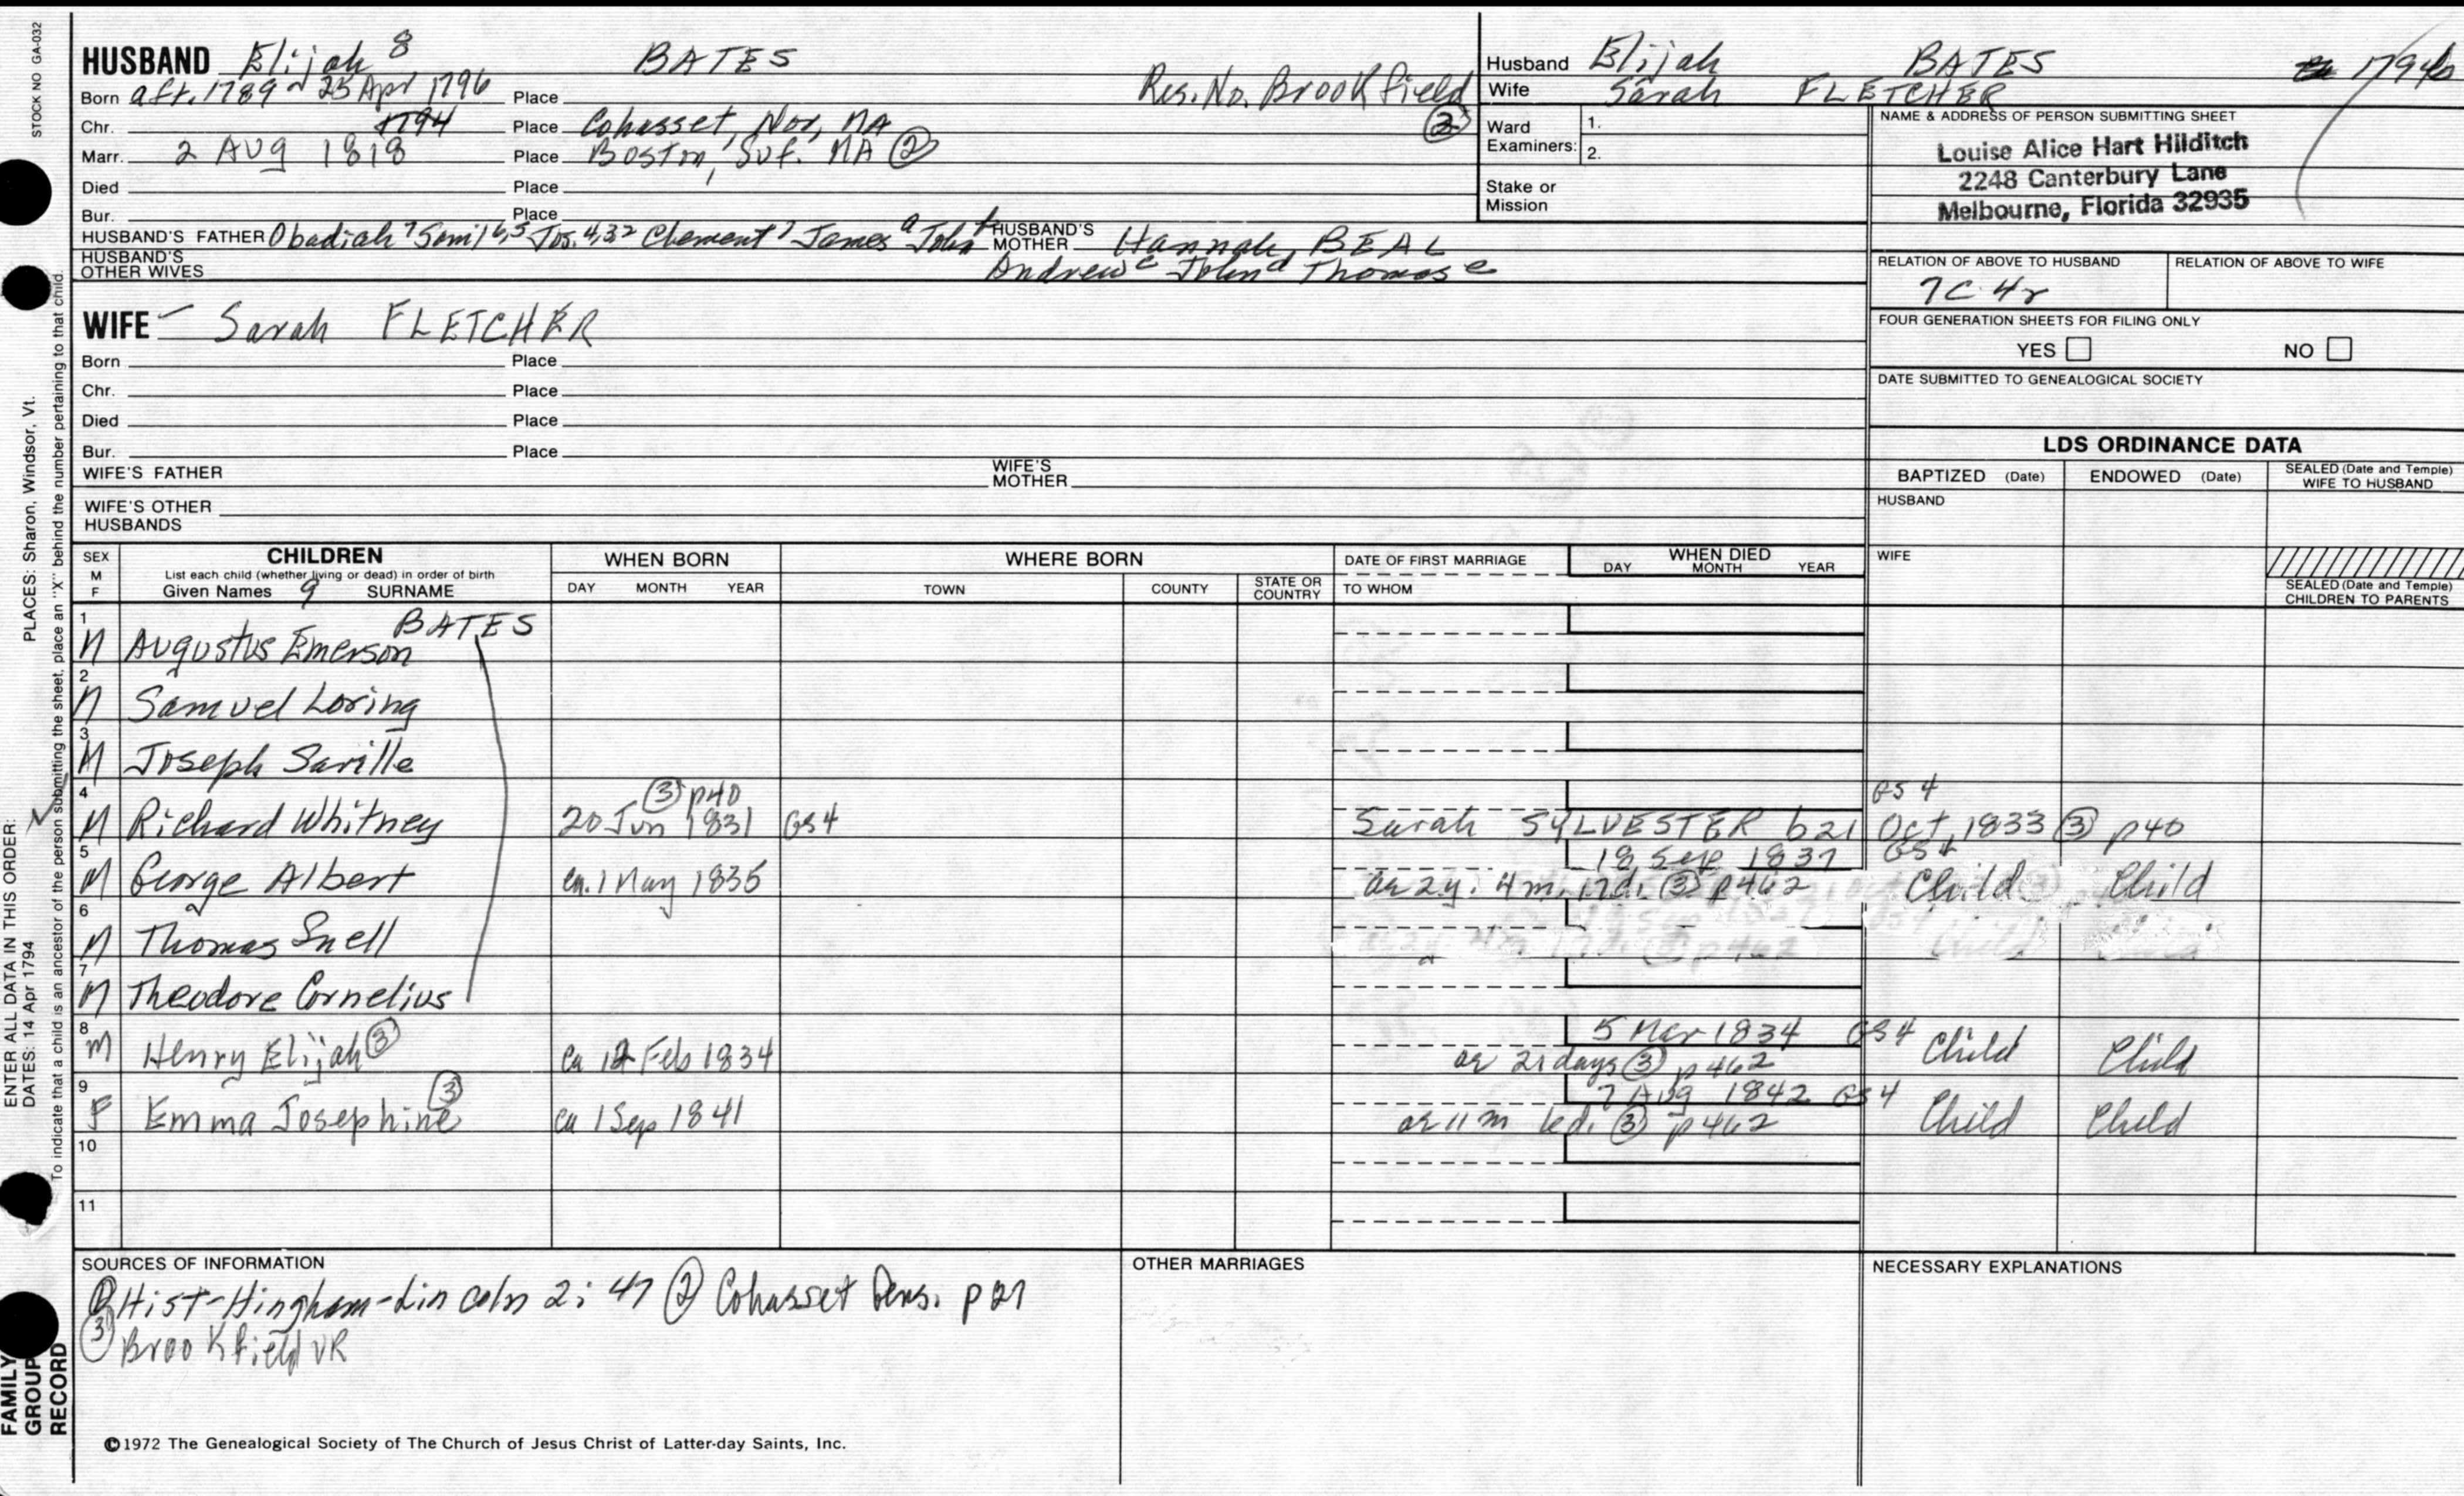 STOCK NO GA-032
HUSBAND Elijah 8 BATES
Born aft. 1789 ~ 25 Apr 1796 Place Res. No. Brookfield
Chr. 1794 Place Cohasset, Nor, MA ③
Marr. 2 AUG 1818 Place Boston, Suf. MA ②
Died Place
Bur. Place
HUSBAND'S FATHER Obadiah 7 Saml 6,5 Jos. 4,3,2 Clement 1 James a John b HUSBAND'S MOTHER Hannah BEAL
HUSBAND'S OTHER WIVES Andrew c John d Thomas e
Husband Elijah BATES 1794/6
Wife Sarah FLETCHER
Ward Examiners: 1.
2.
Stake or Mission
NAME & ADDRESS OF PERSON SUBMITTING SHEET
Louise Alice Hart Hilditch
2248 Canterbury Lane
Melbourne, Florida 32935
RELATION OF ABOVE TO HUSBAND RELATION OF ABOVE TO WIFE
7C 4r
FOUR GENERATION SHEETS FOR FILING ONLY
YES NO
DATE SUBMITTED TO GENEALOGICAL SOCIETY
WIFE Sarah FLETCHER
Born Place
Chr. Place
Died Place
Bur. Place
WIFE'S FATHER WIFE'S MOTHER
WIFE'S OTHER HUSBANDS
LDS ORDINANCE DATA
BAPTIZED (Date) ENDOWED (Date) SEALED (Date and Temple) WIFE TO HUSBAND
HUSBAND
WIFE
SEALED (Date and Temple) CHILDREN TO PARENTS
SEX M F
CHILDREN
List each child (whether living or dead) in order of birth
Given Names 9 SURNAME
WHEN BORN DAY MONTH YEAR
WHERE BORN TOWN COUNTY STATE OR COUNTRY
DATE OF FIRST MARRIAGE
TO WHOM
WHEN DIED DAY MONTH YEAR
1 BATES
M Augustus Emerson
2
M Samuel Loring
3
M Joseph Saville
4 ③ p40 GS 4
M Richard Whitney 20 Jun 1831 GS4 Sarah SYLVESTER b 21 Oct, 1833 ③ p40
5 18 Sep 1837 GS4
M George Albert ca. 1 May 1835 ae 2y. 4m. 17d. ③ p462 Child Child
6
M Thomas Snell
7
M Theodore Cornelius
8 5 Mar 1834 GS4
M Henry Elijah ③ ca 12 Feb 1834 ae 21 days ③ p462 Child Child
9 ③ 7 Aug 1842 GS4
F Emma Josephine ca 1 Sep 1841 ae 11m 6d. ③ p462 Child Child
10
11
SOURCES OF INFORMATION
① Hist-Hingham-Lincoln 2: 47 ② Cohasset Gens. p 27
③ Brookfield VR
OTHER MARRIAGES
NECESSARY EXPLANATIONS
©1972 The Genealogical Society of The Church of Jesus Christ of Latter-day Saints, Inc.
ENTER ALL DATA IN THIS ORDER:
DATES: 14 Apr 1794 PLACES: Sharon, Windsor, Vt.
To indicate that a child is an ancestor of the person submitting the sheet, place an "X" behind the number pertaining to that child.
FAMILY
GROUP
RECORD